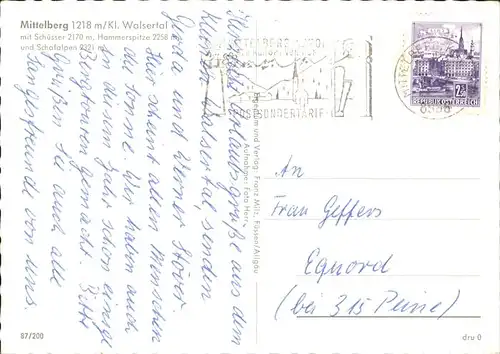 Mittelberg 1218 m/Kl. Walsertal
mit Schüsser 2170 m, Hammerspitze 2258
und Schafalpen 2321 m
Herzliche Urlaubsgrüße aus dem
Kleinen Walsertal senden
Gerda und Werner Stöver.
Hier scheint allen Menschen
die Sonne. Wir haben auch
in diesem Jahr schon einige
Bergtouren gemacht. Bitte
Grüßen Sie auch alle
Sangesfreunde von uns.
87/200
und Verlag Franz Milz, Füssen/Allgäu
Aufnahme: Foto
SONDERTARIF
REPUBLIK ÖSTERREICH
An
Frau Geffers
Equord
(bei 315 Peine)
dru 0